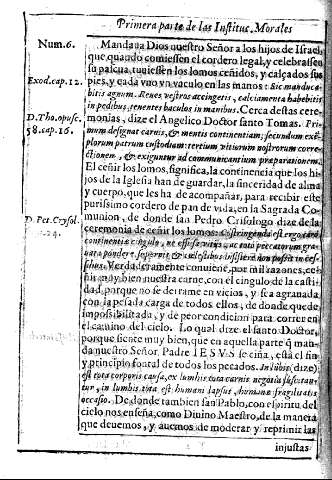 Primera parte de las Instituc. Morales
Num.6.
Mandaua Dios nuestro Señor a los hijos de Israel,
que quando comiessen el cordero legal, y celebrassen
su pascua, tuuiessen los lomos ceñidos, y calçados sus
pies, y cada vno vn vaculo en las manos: Sic manduca
Exod.cap.12.
bitis agnum. Renes vestros accingetis, calciamenta habebitis
in pedibus, tenentes baculos in manibus. Cerca destas cere
D.Tho.opusc.
monias, dize el Angelico Doctor santo Tomas. Pri-
58.cap.16.
mum designat carnis, & mentis continentiam; secundum exe
plorum patrum custodiam: tertium vitiorum nostrorum corre-
ctionem, & exiguntur ad communicantium praeparationem.
El ceñir los lomos, significa, la continencia que los hi-
jos de la Iglesia han de guardar, la sinceridad de alma
y cuerpo, que les ha de acompañar, para recibir este
purissimo cordero de pan de vida, en la Sagrada Co
munion, de donde san Pedro Crisologo dize de la
D. Pet. Crysol.
ceremonia de ceñir los lomos:
continentiæ cingulo,
Verdaderamente conuiene, por mil razones, ce-
ñir muy bien nuestra carne, con el cingulo de la casti-
dad, porque no se derrame en vicios, y sea agranada
con la pesada carga de todos ellos, de donde quede
impossibilitada, y de peor condicion para correr en
el camino del cielo. Lo qual dize el santo Doctor,
porque siente muy bien, que en aquella parte q̃ man-
da nuestro Señor Padre IESVS se ciña, està el fin
y principio fontal de todos los pecados. In lübis (dize)
est tota corporis causa, ex lumbis tota carnis negotia suscitan
tur, in lumbis tota est humani lapsus, humanæ fragilitatis
occasio. De donde tambien san Pablo, con espiritu del
cielo nos enseña, como Diuino Maestro, de la manera
que deuemos, y auemos de moderar y reprimir las
injustas